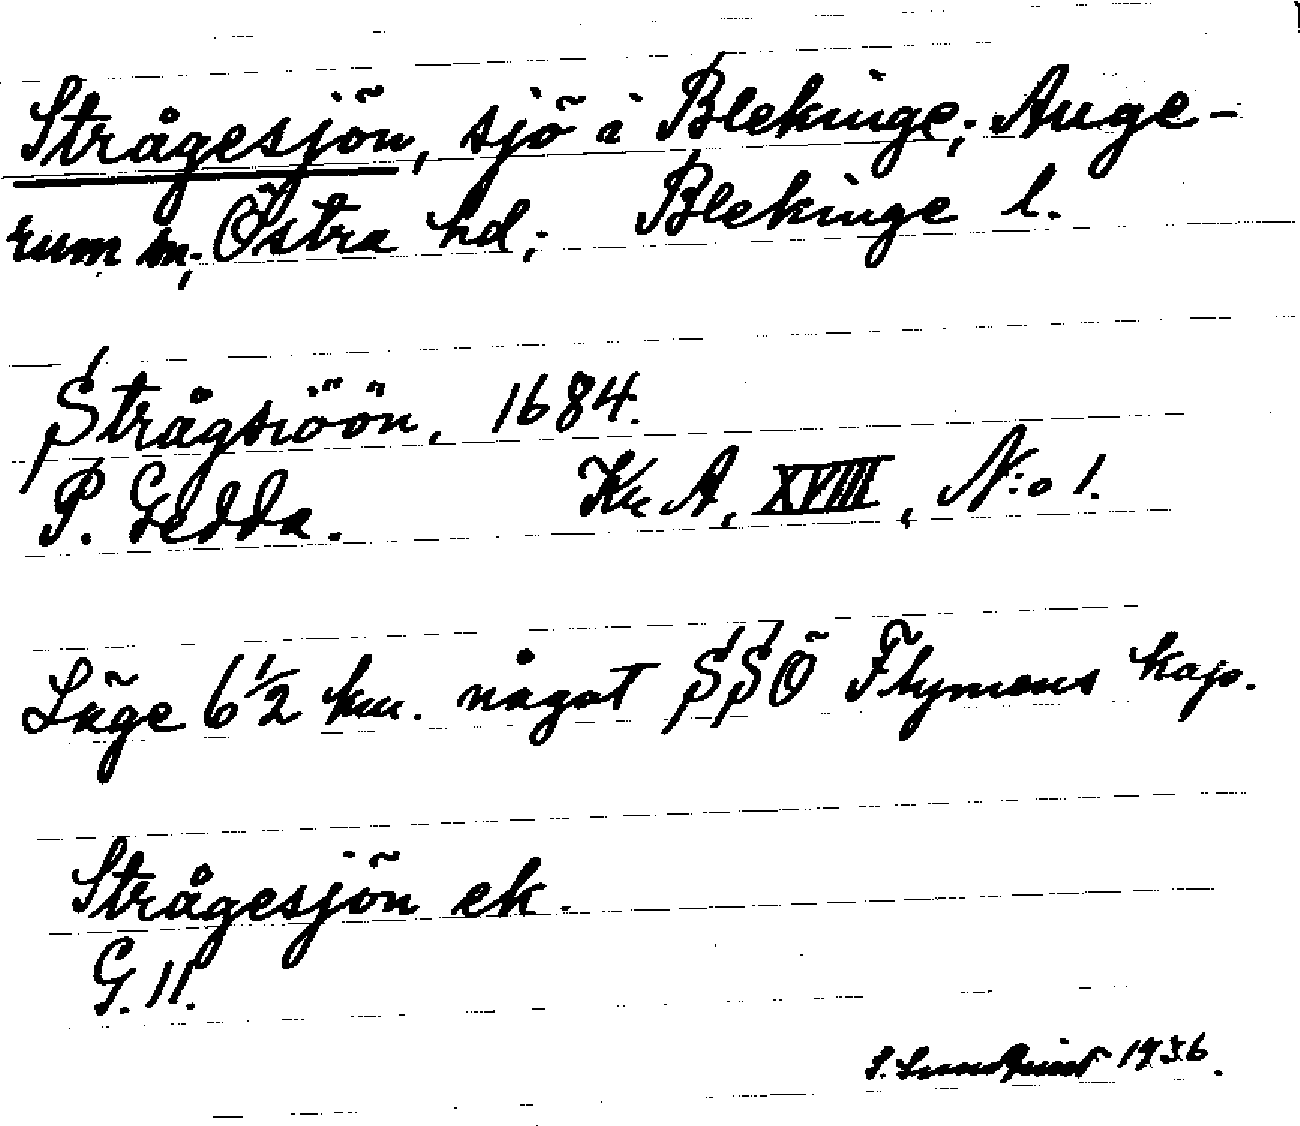 Strågesjön, sjö i Blekinge; Auge-
rum sn; Östra hd; Blekinge l.
Strågsiöön, 1684.
P. Gedda. Kr. A, XVIII, N:o 1.
Läge 6 1/2 km. något SSÖ Flymens kap.
Strågesjön ek.
G. 11.
1936.